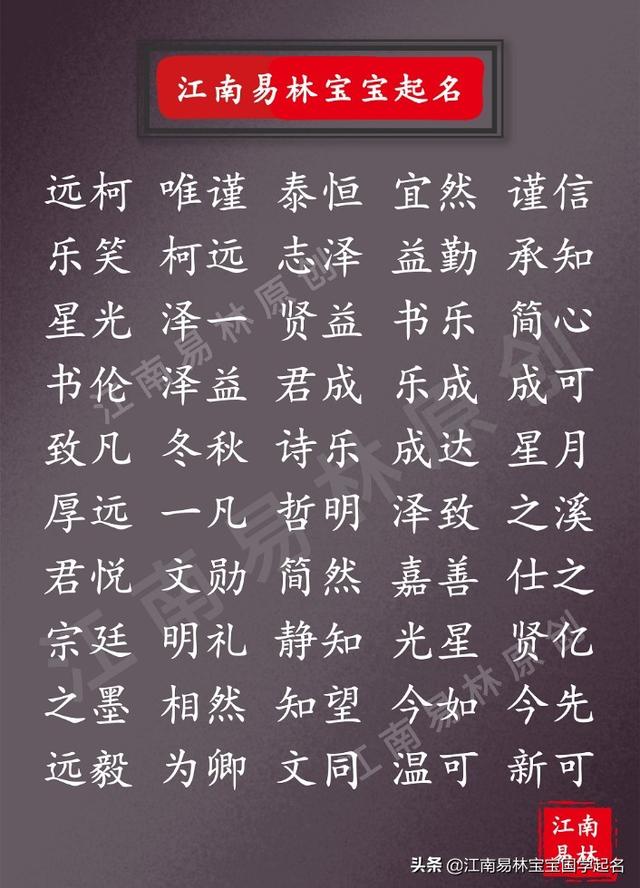 江南易林宝宝起名
远柯 唯谨 泰恒 宜然 谨信
乐笑 柯远 志泽 益勤 承知
星光 泽一 贤益 书乐 简心
书伦 泽益 君成 乐成 成可
致凡 冬秋 诗乐 成达 星月
厚远 一凡 哲明 泽致 之溪
君悦 文勋 简然 嘉善 仕之
宗廷 明礼 静知 光星 贤亿
之墨 相然 知望 今如 今先
远毅 为卿 文同 温可 新可
江南易林原创
江南易林原创
江南易林原创
江南
易林
头条 @江南易林宝宝国学起名